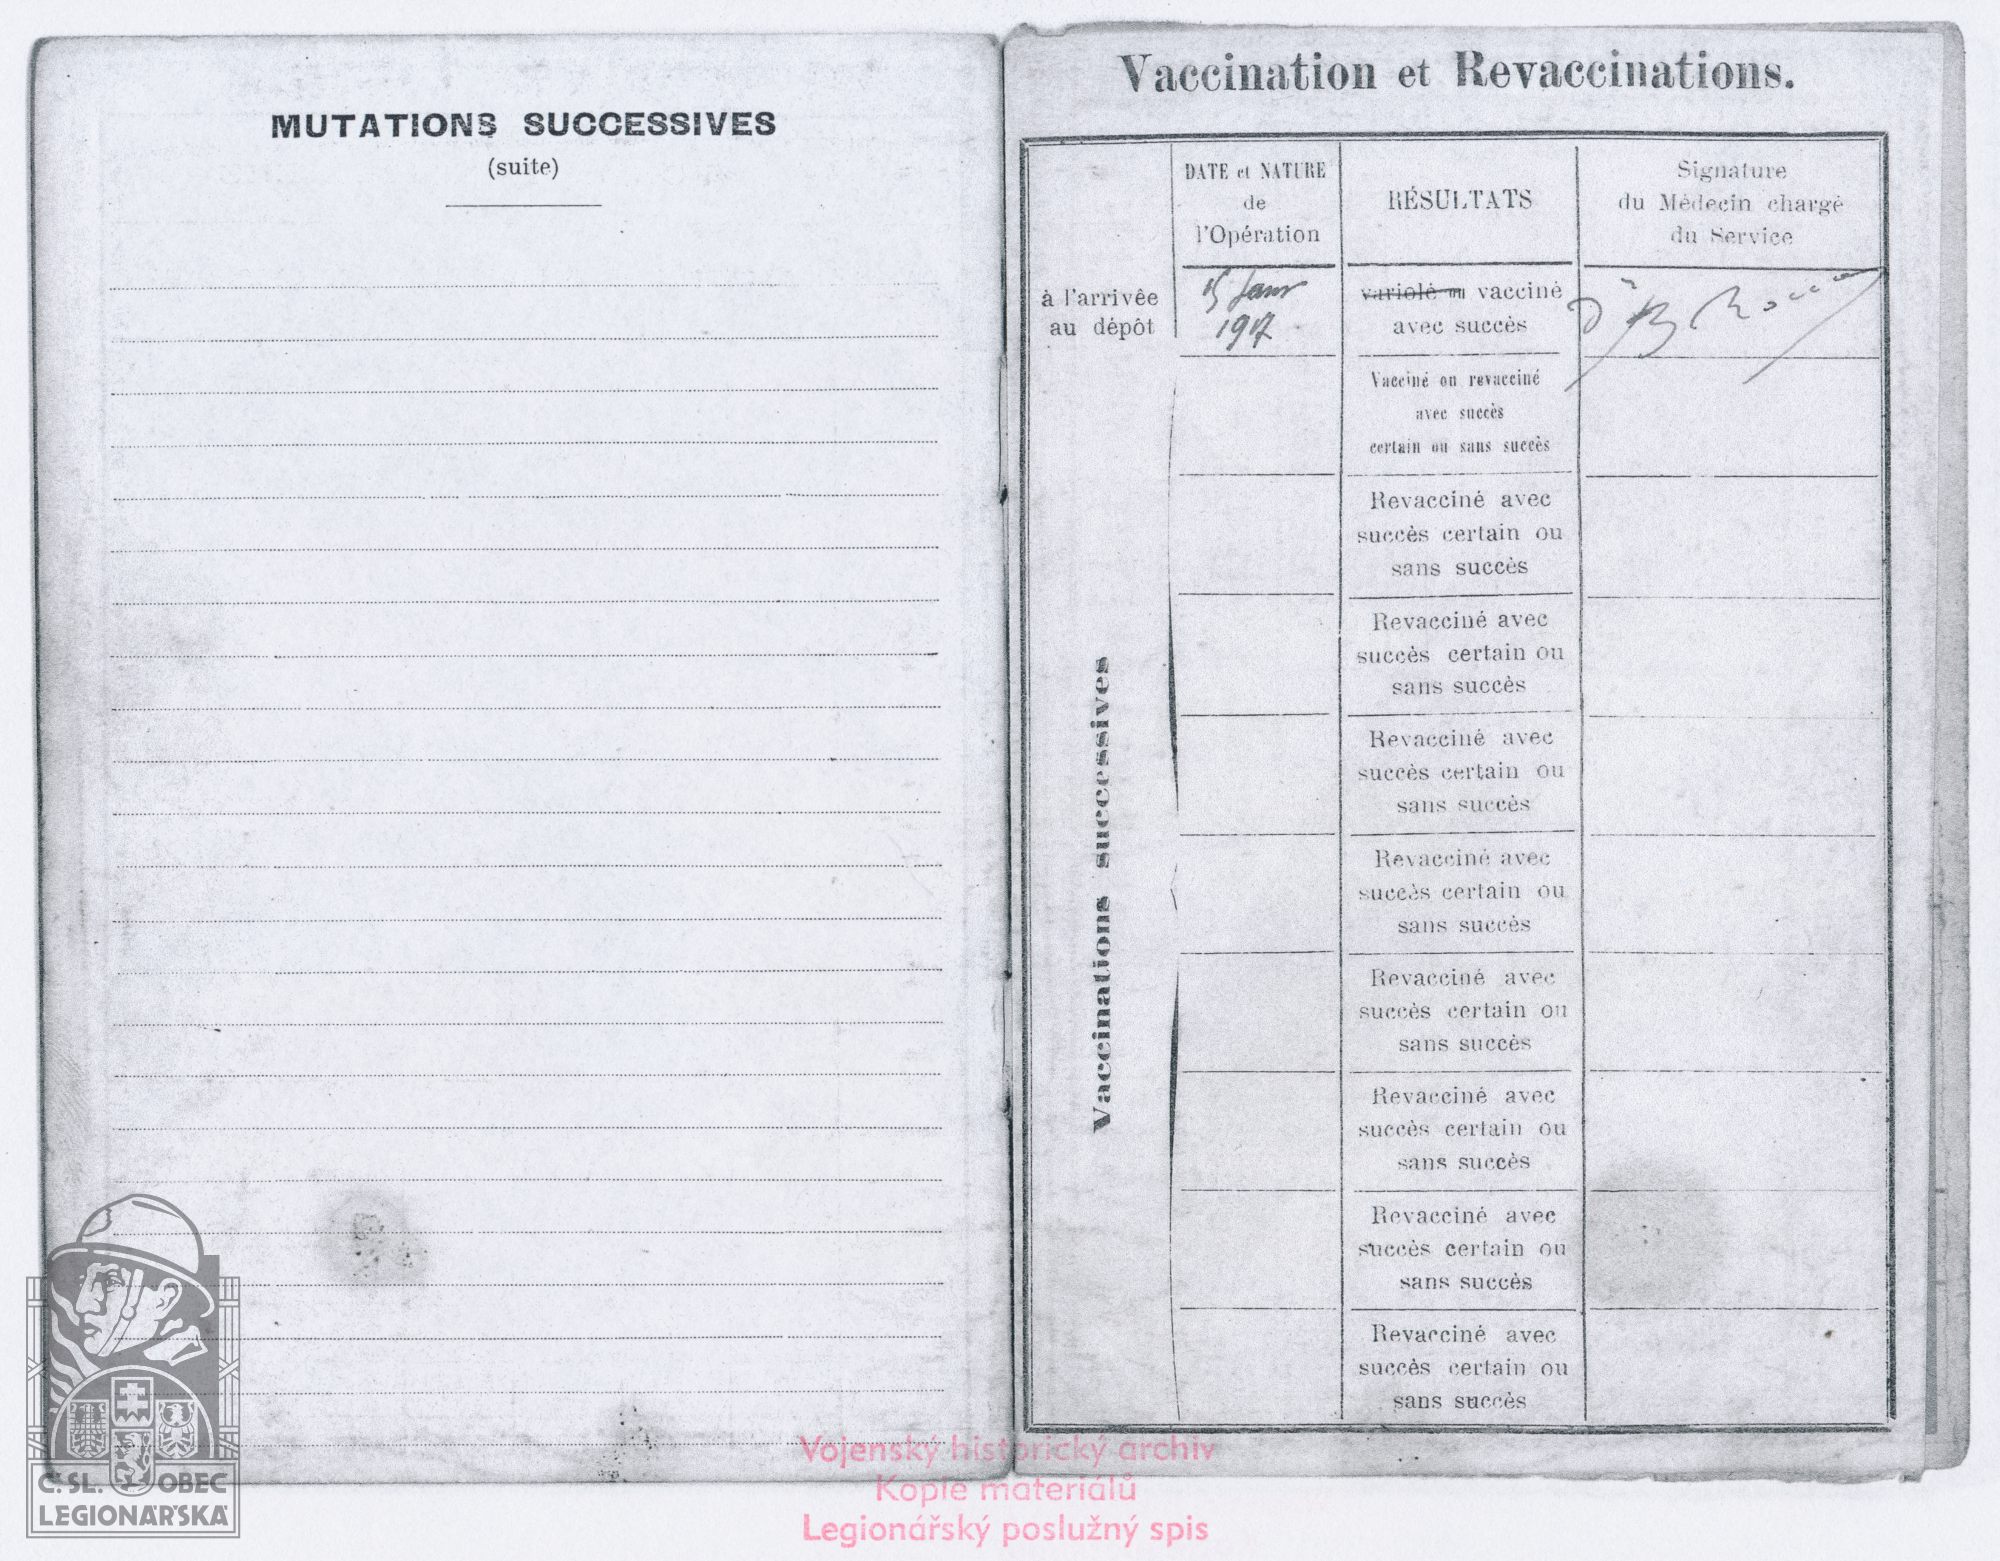 MUTATIONS SUCCESSIVES
(suite)
Vaccination et Revaccinations.
DATE et NATURE
de
l'Opération
RÉSULTATS
Signature
du Médecin chargé
du Service
à l'arrivée
au dépôt
15 Janv
1917
variolé ou vacciné
avec succès
Vaccinations successives
Vacciné ou revacciné
avec succès
certain ou sans succès
Revacciné avec
succès certain ou
sans succès
Revacciné avec
succès certain ou
sans succès
Revacciné avec
succès certain ou
sans succès
Revacciné avec
succès certain ou
sans succès
Revacciné avec
succès certain ou
sans succès
Revacciné avec
succès certain ou
sans succès
Revacciné avec
succès certain ou
sans succès
Revacciné avec
succès certain ou
sans succès
Č. SL. OBEC
LEGIONÁŘSKÁ
Vojenský historický archiv
Kopie materiálů
Legionářský poslužný spis